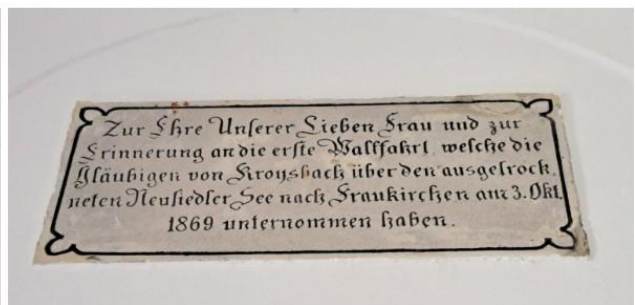 Zur Ehre Unserer Lieben Frau und zur
Erinnerung an die erste Wallfahrt, welche die
Gläubigen von Kroysbach über den ausgetrock
neten Neusiedler See nach Fraukirchen am 3. Okt.
1869 unternommen haben.